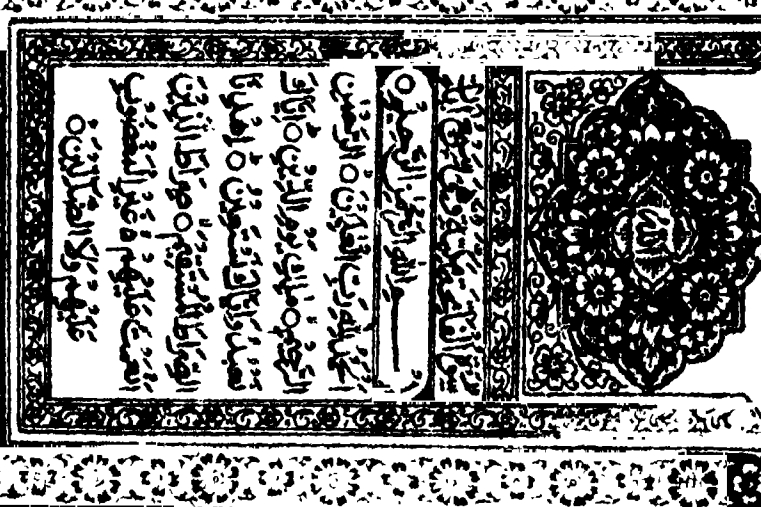 سورة الفاتحة مكية وهي سبع آيات
بِسْمِ اللَّهِ الرَّحْمَٰنِ الرَّحِيمِ
اَلْحَمْدُ لِلَّهِ رَبِّ الْعَالَمِينَ ○ الرَّحْمَٰنِ
الرَّحِيمِ ○ مَالِكِ يَوْمِ الدِّينِ ○ إِيَّاكَ
نَعْبُدُ وَإِيَّاكَ نَسْتَعِينُ ○ اِهْدِنَا
الصِّرَاطَ الْمُسْتَقِيمَ ○ صِرَاطَ الَّذِينَ
أَنْعَمْتَ عَلَيْهِمْ غَيْرِ الْمَغْضُوبِ
عَلَيْهِمْ وَلَا الضَّالِّينَ ○